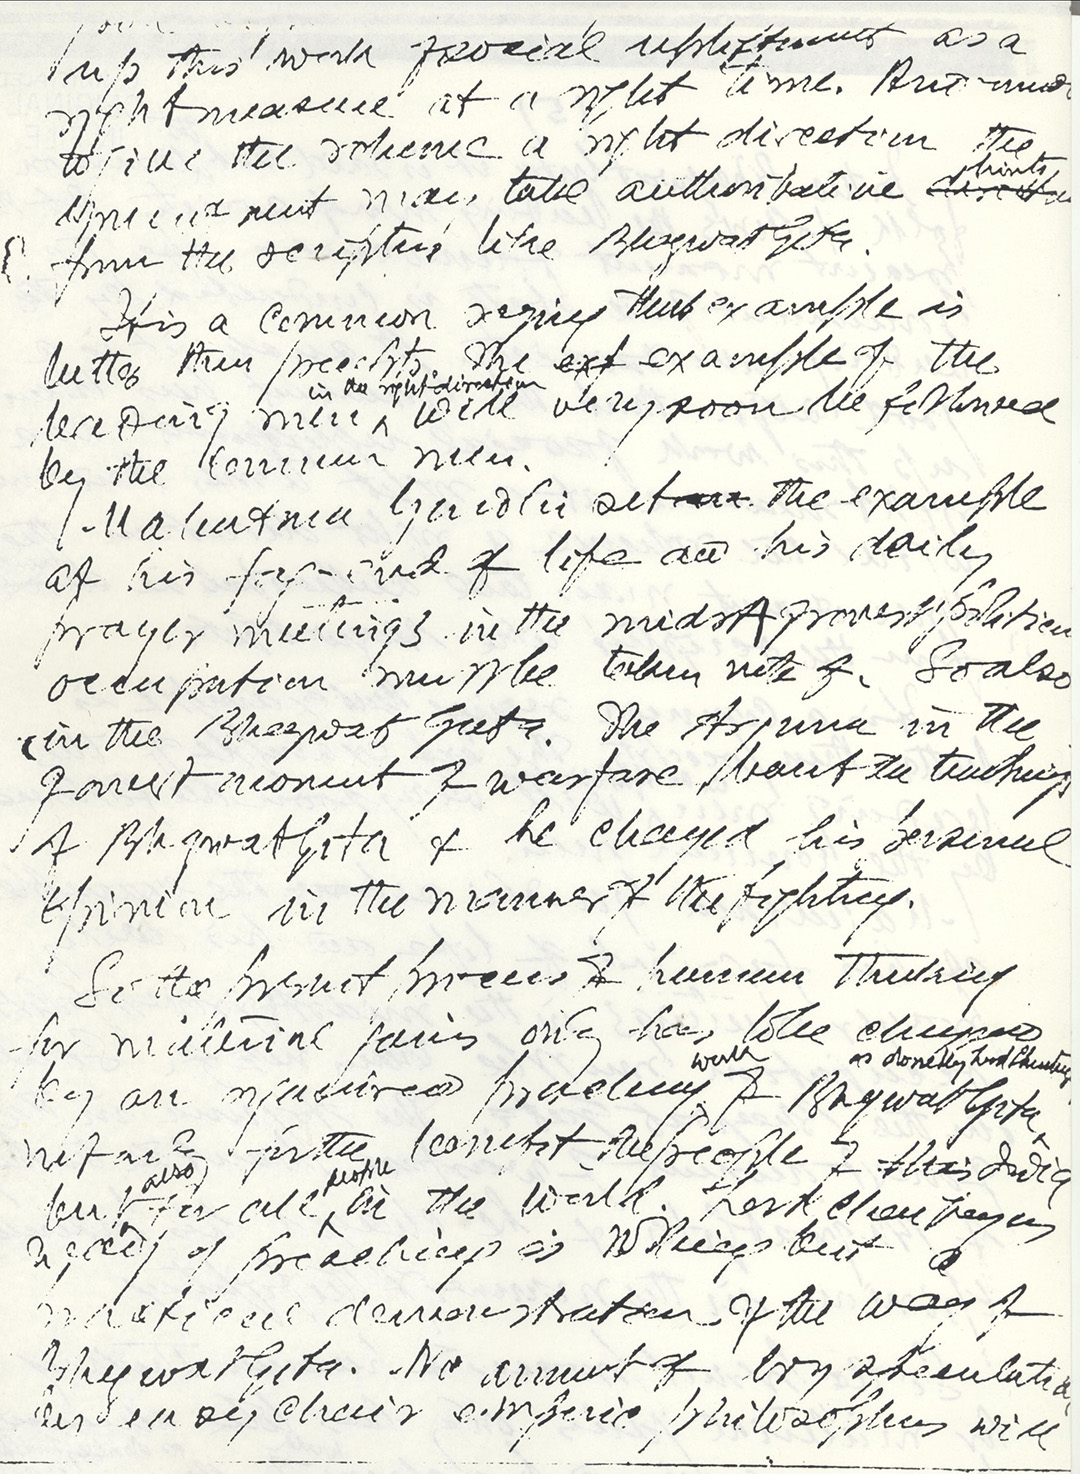 up this work of social upliftment as a
right measure at a right time. And in order
to give the scheme a right direction the
Government may take authoritative hints
from the scriptures like Bhagwat Gita.
It is a common saying that example is
better than precepts. The example of the
leading men in the right direction will very soon be followed
by the common men.
Mahatma Gandhi set the example
at his fag-end of life and his daily
prayer meetings in the midst of gravest political
occupation must be taken note of. So also
in the Bhagwat Geeta. The Arjuna in the
gravest moment of warfare heard the teachings
of Bhagwat Gita & he changed his personal
opinion in the manner of the fighting.
So the present process of human thinking
for material gains only has to be changed
by an organised preaching work of Bhagwat Gita as done by Lord Chaitanya
not only for the benefit the people of this India
but also for all people in the world. Lord Chaitanya's
of preaching is nothing but a
practical demonstration of the way of
Bhagwat Gita. No amount of dry speculation
by easy chair empiric philosophers will